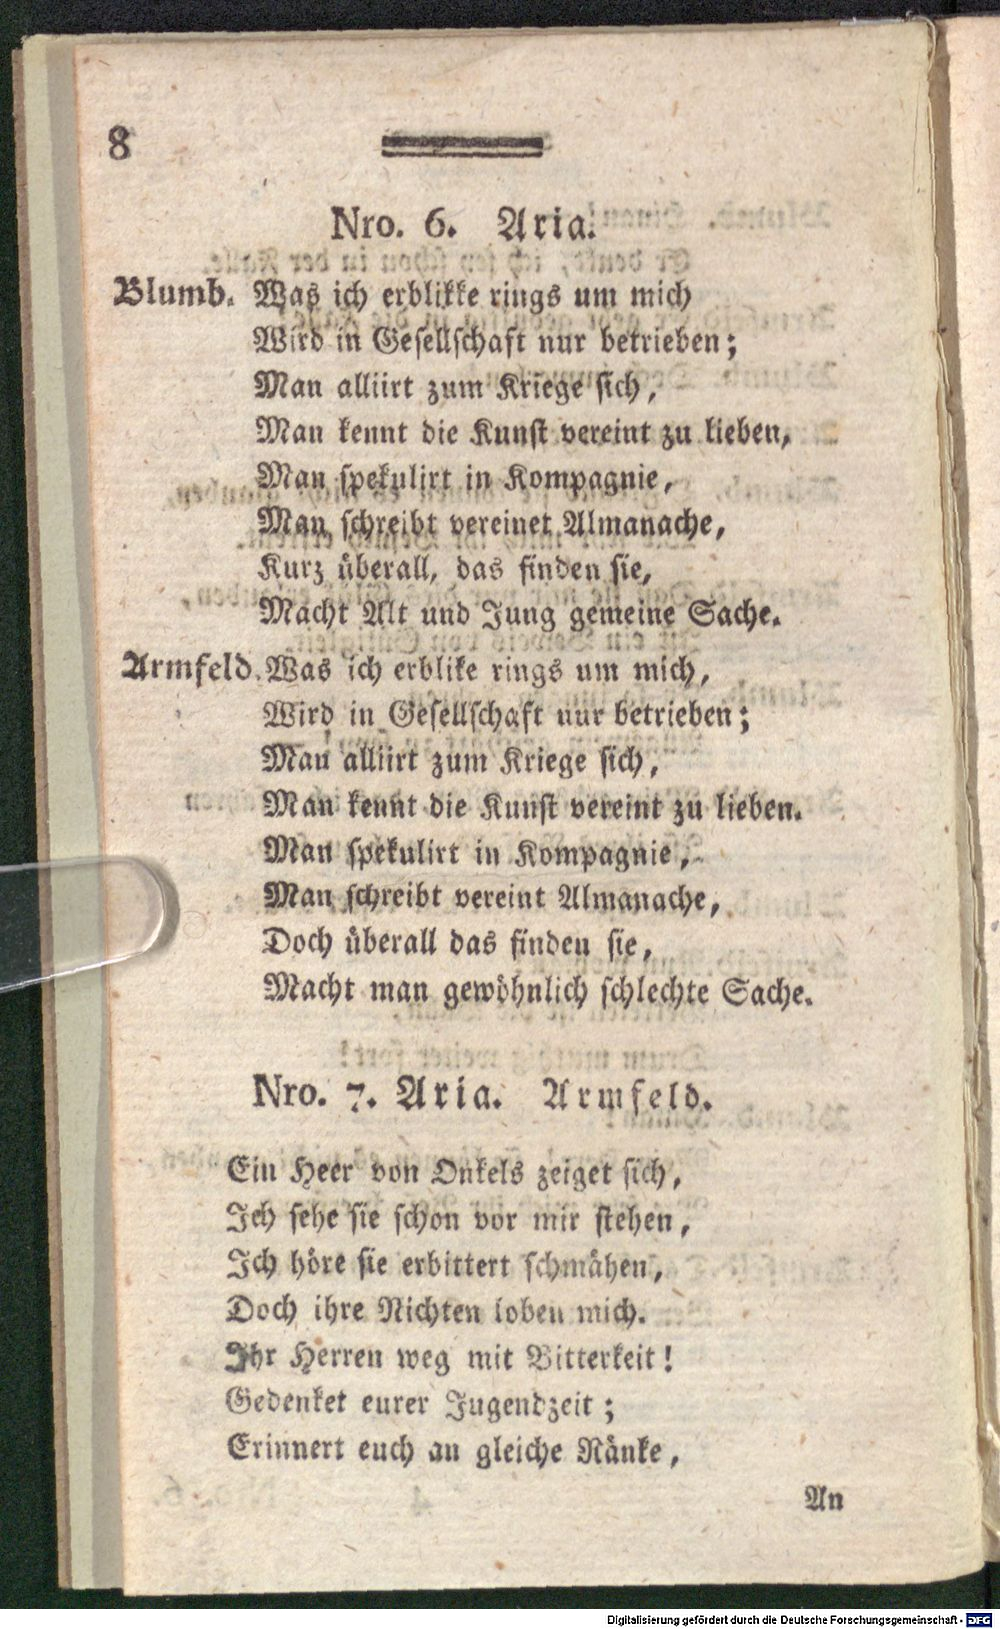 8
Nro. 6. Aria.
Blumb. Was ich erblikke rings um mich
Wird in Gesellschaft nur betrieben;
Man alliirt zum Kriege sich,
Man kennt die Kunst vereint zu lieben,
Man spekulirt in Kompagnie,
Man schreibt vereinet Almanache,
Kurz überall, das finden sie,
Macht Alt und Jung gemeine Sache.
Armfeld. Was ich erblike rings um mich,
Wird in Gesellschaft nur betrieben;
Man alliirt zum Kriege sich,
Man kennt die Kunst vereint zu lieben.
Man spekulirt in Kompagnie,
Man schreibt vereint Almanache,
Doch überall das finden sie,
Macht man gewöhnlich schlechte Sache.
Nro. 7. Aria. Armfeld.
Ein Heer von Onkels zeiget sich,
Ich sehe sie schon vor mir stehen,
Ich höre sie erbittert schmähen,
Doch ihre Nichten loben mich.
Ihr Herren weg mit Bitterkeit!
Gedenket eurer Jugendzeit;
Erinnert euch an gleiche Ränke,
An
Digitalisierung gefördert durch die Deutsche Forschungsgemeinschaft - DFG